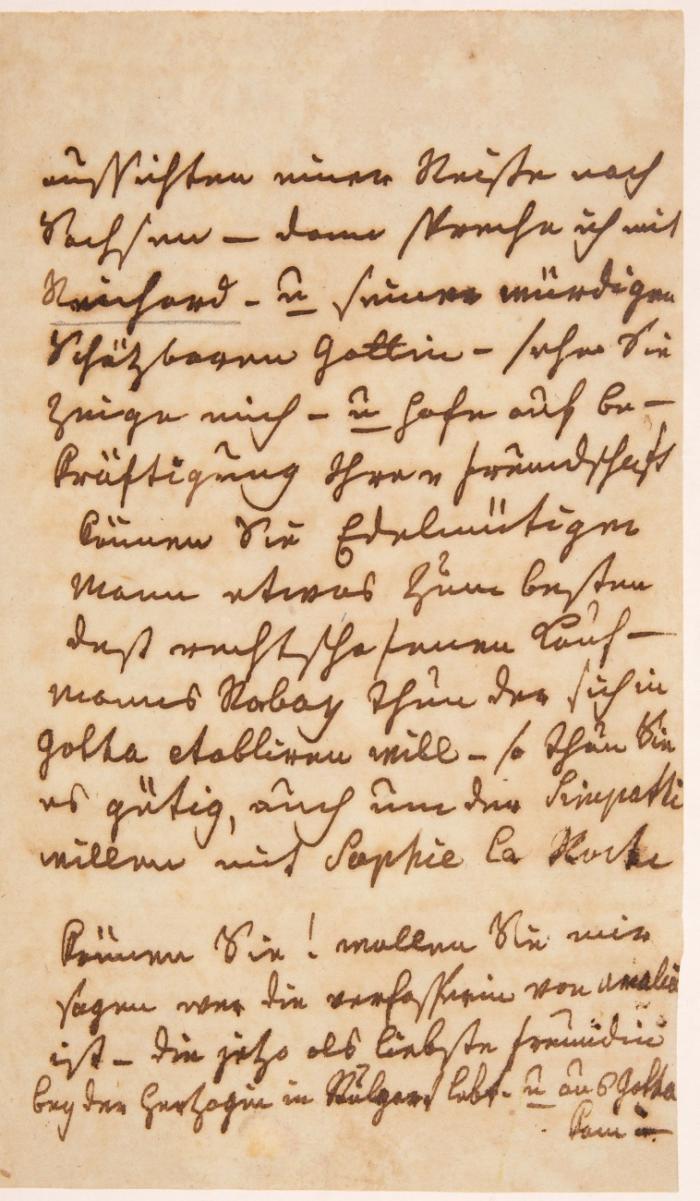 aussichten einer Reiße nach
Sachsen – dann spreche ich mit
Reichard – u seiner würdigen
Schätzbaren Gattin – sehe Sie
zeige mich – u hofe auf be–
kräftigung Ihrer freundschaft
könen Sie Edelmütiger
Mann etwas zum besten
deß rechtschafenen Kauf–
manns Nabay thun der sich in
Gotta etabliren will – so thun Sie
es gütig, auch um der Simpatti
willen mit Sophie la Roche
könen Sie! wollen Sie mir
sagen wer die verfasserin von amalie
ist – die jetzo als liebste freundin
bey der Herzogin in lebt – u aus Gotta
kam –